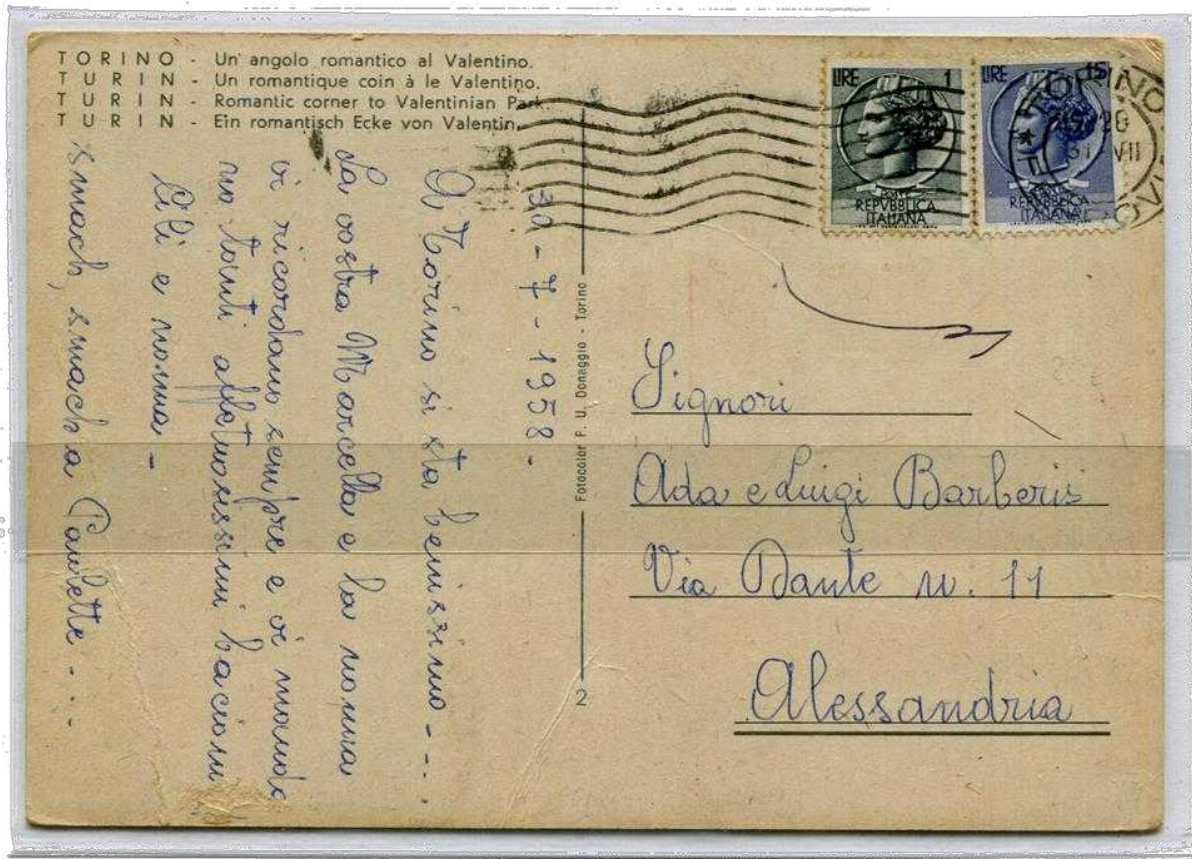 TORINO - Un' angolo romantico al Valentino.
TURIN - Un romantique coin à le Valentino.
TURIN - Romantic corner to Valentinian Park.
TURIN - Ein romantisch Ecke von Valentin.
LIRE 1
REPVBBLICA
ITALIANA
LIRE 15
REPVBBLICA
ITALIANA
TORINO
20
31 VII
30-7-1958-
A Torino si sta benissimo - - .
La vostra Marcella e la nonna
vi ricordano sempre e vi manda
no tanti affettuosissimi bacioni
Lili e nonna -
smach, smach a Paulette - . .
Fotocolor F. U. Donaggio - Torino
2
Signori
Ada e Luigi Barberis
Via Dante n. 11
Alessandria